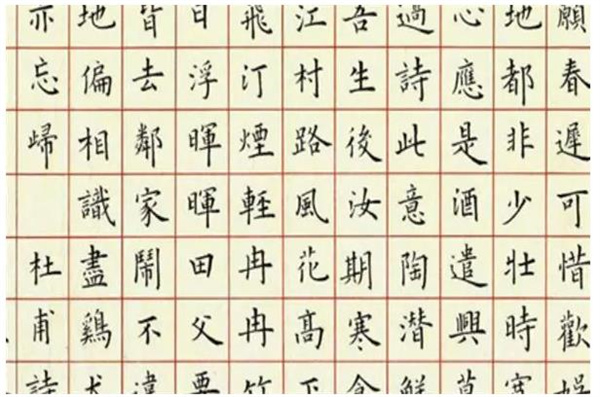 願春遲可惜歡娛
地都非少壯時寬
心應是酒遣興莫
過詩此意陶潛解
吾生後汝期寒食
江村路風花高下
飛汀煙輕冉冉竹
日浮暉暉田父要
皆去鄰家鬧不違
地偏相識盡鷄犬
亦忘歸 杜甫詩